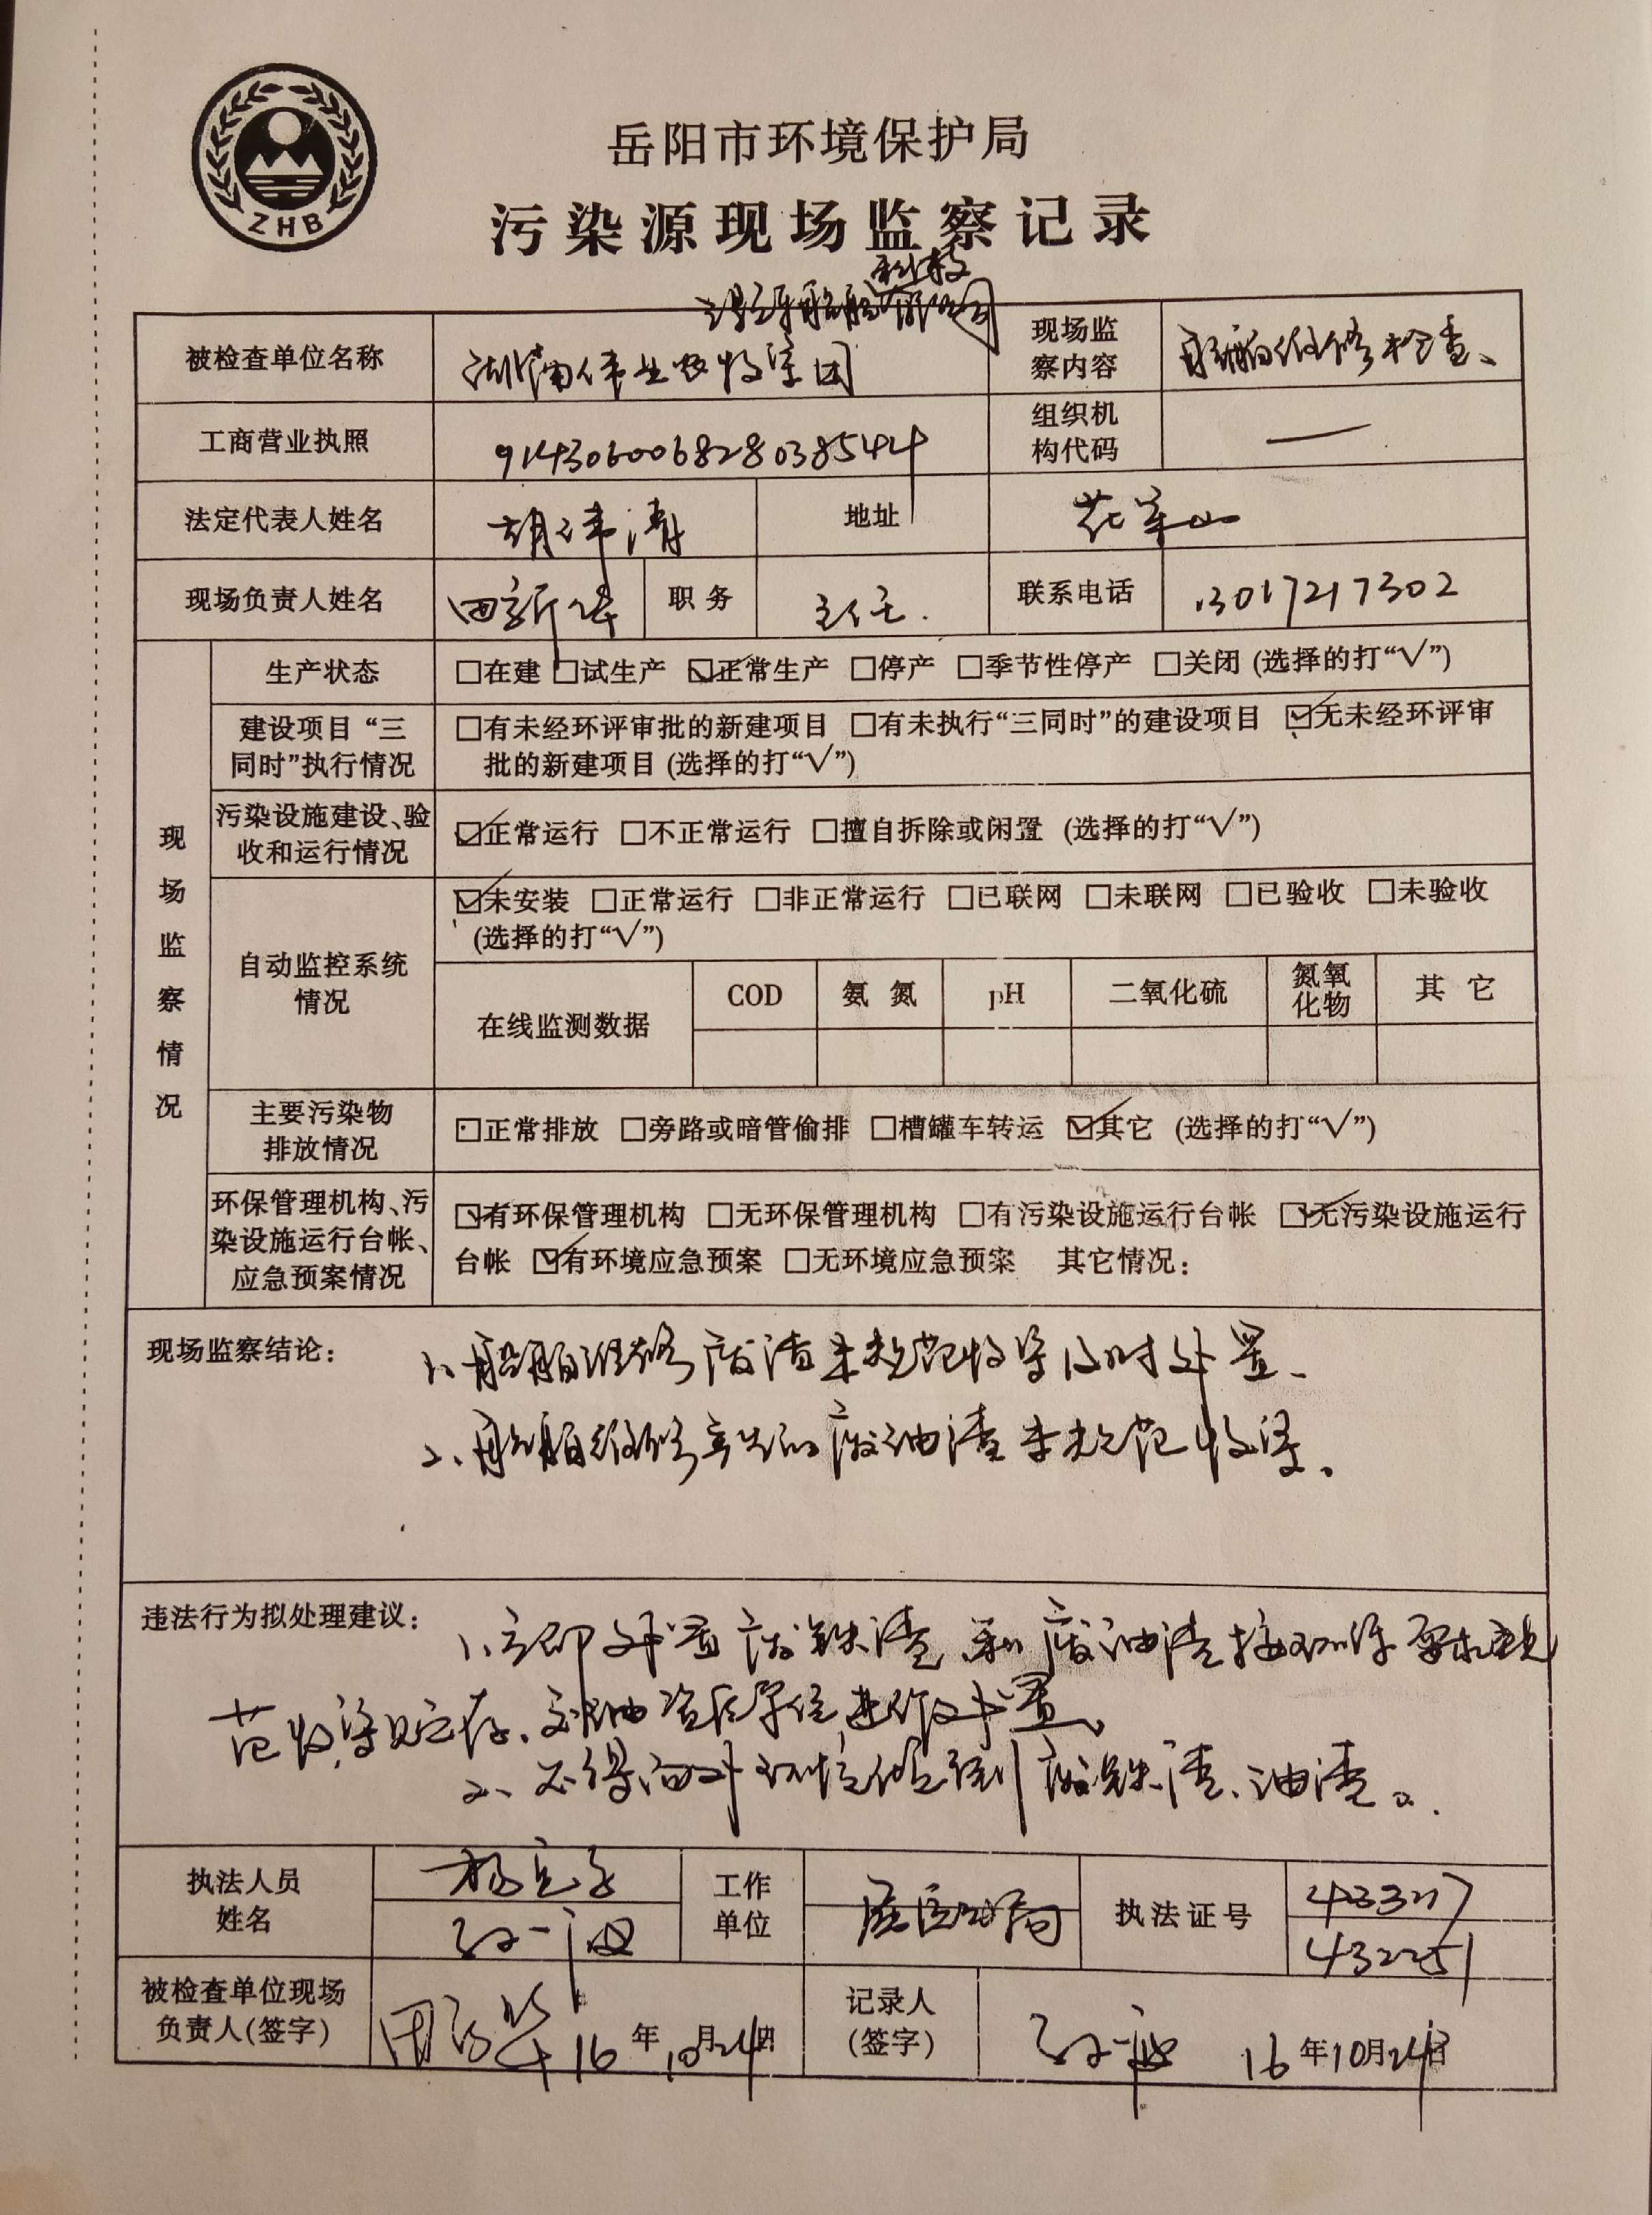 ZHB
岳阳市环境保护局
污染源现场监察记录
科技
船舶有限公司
被检查单位名称 湖南伟业农牧集团 现场监察内容 船舶维修检查、
工商营业执照 914306006828038544 组织机构代码 —
法定代表人姓名 胡伟清 地址
现场负责人姓名 田新华 职务 主任. 联系电话 13017217302
现场监察情况
生产状态 □在建 □试生产 ☑正常生产 □停产 □季节性停产 □关闭 (选择的打“√”)
建设项目“三同时”执行情况 □有未经环评审批的新建项目 □有未执行“三同时”的建设项目 ☑无未经环评审
批的新建项目 (选择的打“√”)
污染设施建设、验收和运行情况 ☑正常运行 □不正常运行 □擅自拆除或闲置 (选择的打“√”)
自动监控系统情况 ☑未安装 □正常运行 □非正常运行 □已联网 □未联网 □已验收 □未验收
(选择的打“√”)
在线监测数据 COD 氨氮 pH 二氧化硫 氮氧化物 其它
主要污染物排放情况 □正常排放 □旁路或暗管偷排 □槽罐车转运 ☑其它 (选择的打“√”)
环保管理机构、污染设施运行台帐、应急预案情况 ☑有环保管理机构 □无环保管理机构 □有污染设施运行台帐 ☑无污染设施运行
台帐 ☑有环境应急预案 □无环境应急预案 其它情况：
现场监察结论： 1、船舶维修废渣未规范收集及时处置、
2、船舶维修产生的废油渣未规范收集、
违法行为拟处理建议： 1、立即处置废铁渣和废油渣按环保要求规
范收集贮存、交由资质单位进行处置。
2、不得向外环境倾倒废铁渣、油渣。
执法人员姓名 工作单位 执法证号 432251
被检查单位现场负责人(签字) 田新华 16年10月24日 记录人(签字) 16年10月24日